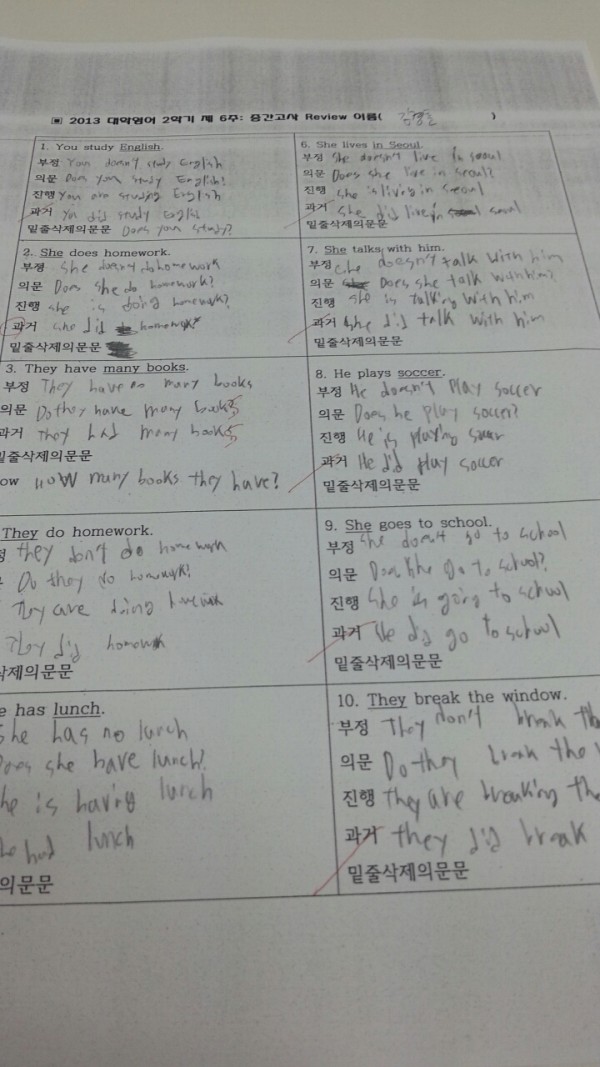 ▣ 2013 대학영어 2학기 제 6주: 중간고사 Review 이름( )
1. You study English.
부정 You doesn't study English
의문 Does you study English?
진행 You are studing English
과거 You did study English
밑줄삭제의문문 Does you study?
2. She does homework.
부정 she doesn't do homework
의문 Does she do homework?
진행 she is doing homework?
과거 she did homework
밑줄삭제의문문
3. They have many books.
부정 They have no many books
의문 Do they have many books
과거 They had many books
밑줄삭제의문문
ow How many books they have?
They do homework.
they don't do homework
Do they do homework?
They are doing homework
They did homework
삭제의문문
e has lunch.
She has no lunch
Does she have lunch?
he is having lunch
he had lunch
의문문
6. She lives in Seoul.
부정 she doesn't live in seoul
의문 Does she live in seoul?
진행 she is living in seoul
과거 she did live in seoul
밑줄삭제의문문
7. She talks with him.
부정 she doesn't talk with him
의문 Does she talk with him?
진행 she is talking with him
과거 she did talk with him
밑줄삭제의문문
8. He plays soccer.
부정 He doesn't play soccer
의문 Does he play soccer?
진행 He is playing soccer
과거 He did play soccer
밑줄삭제의문문
9. She goes to school.
부정 she doesn't go to school
의문 Does she go to school?
진행 she is going to school
과거 He did go to school
밑줄삭제의문문
10. They break the window.
부정 They don't break the
의문 Do they break the
진행 they are breaking the
과거 they did break
밑줄삭제의문문